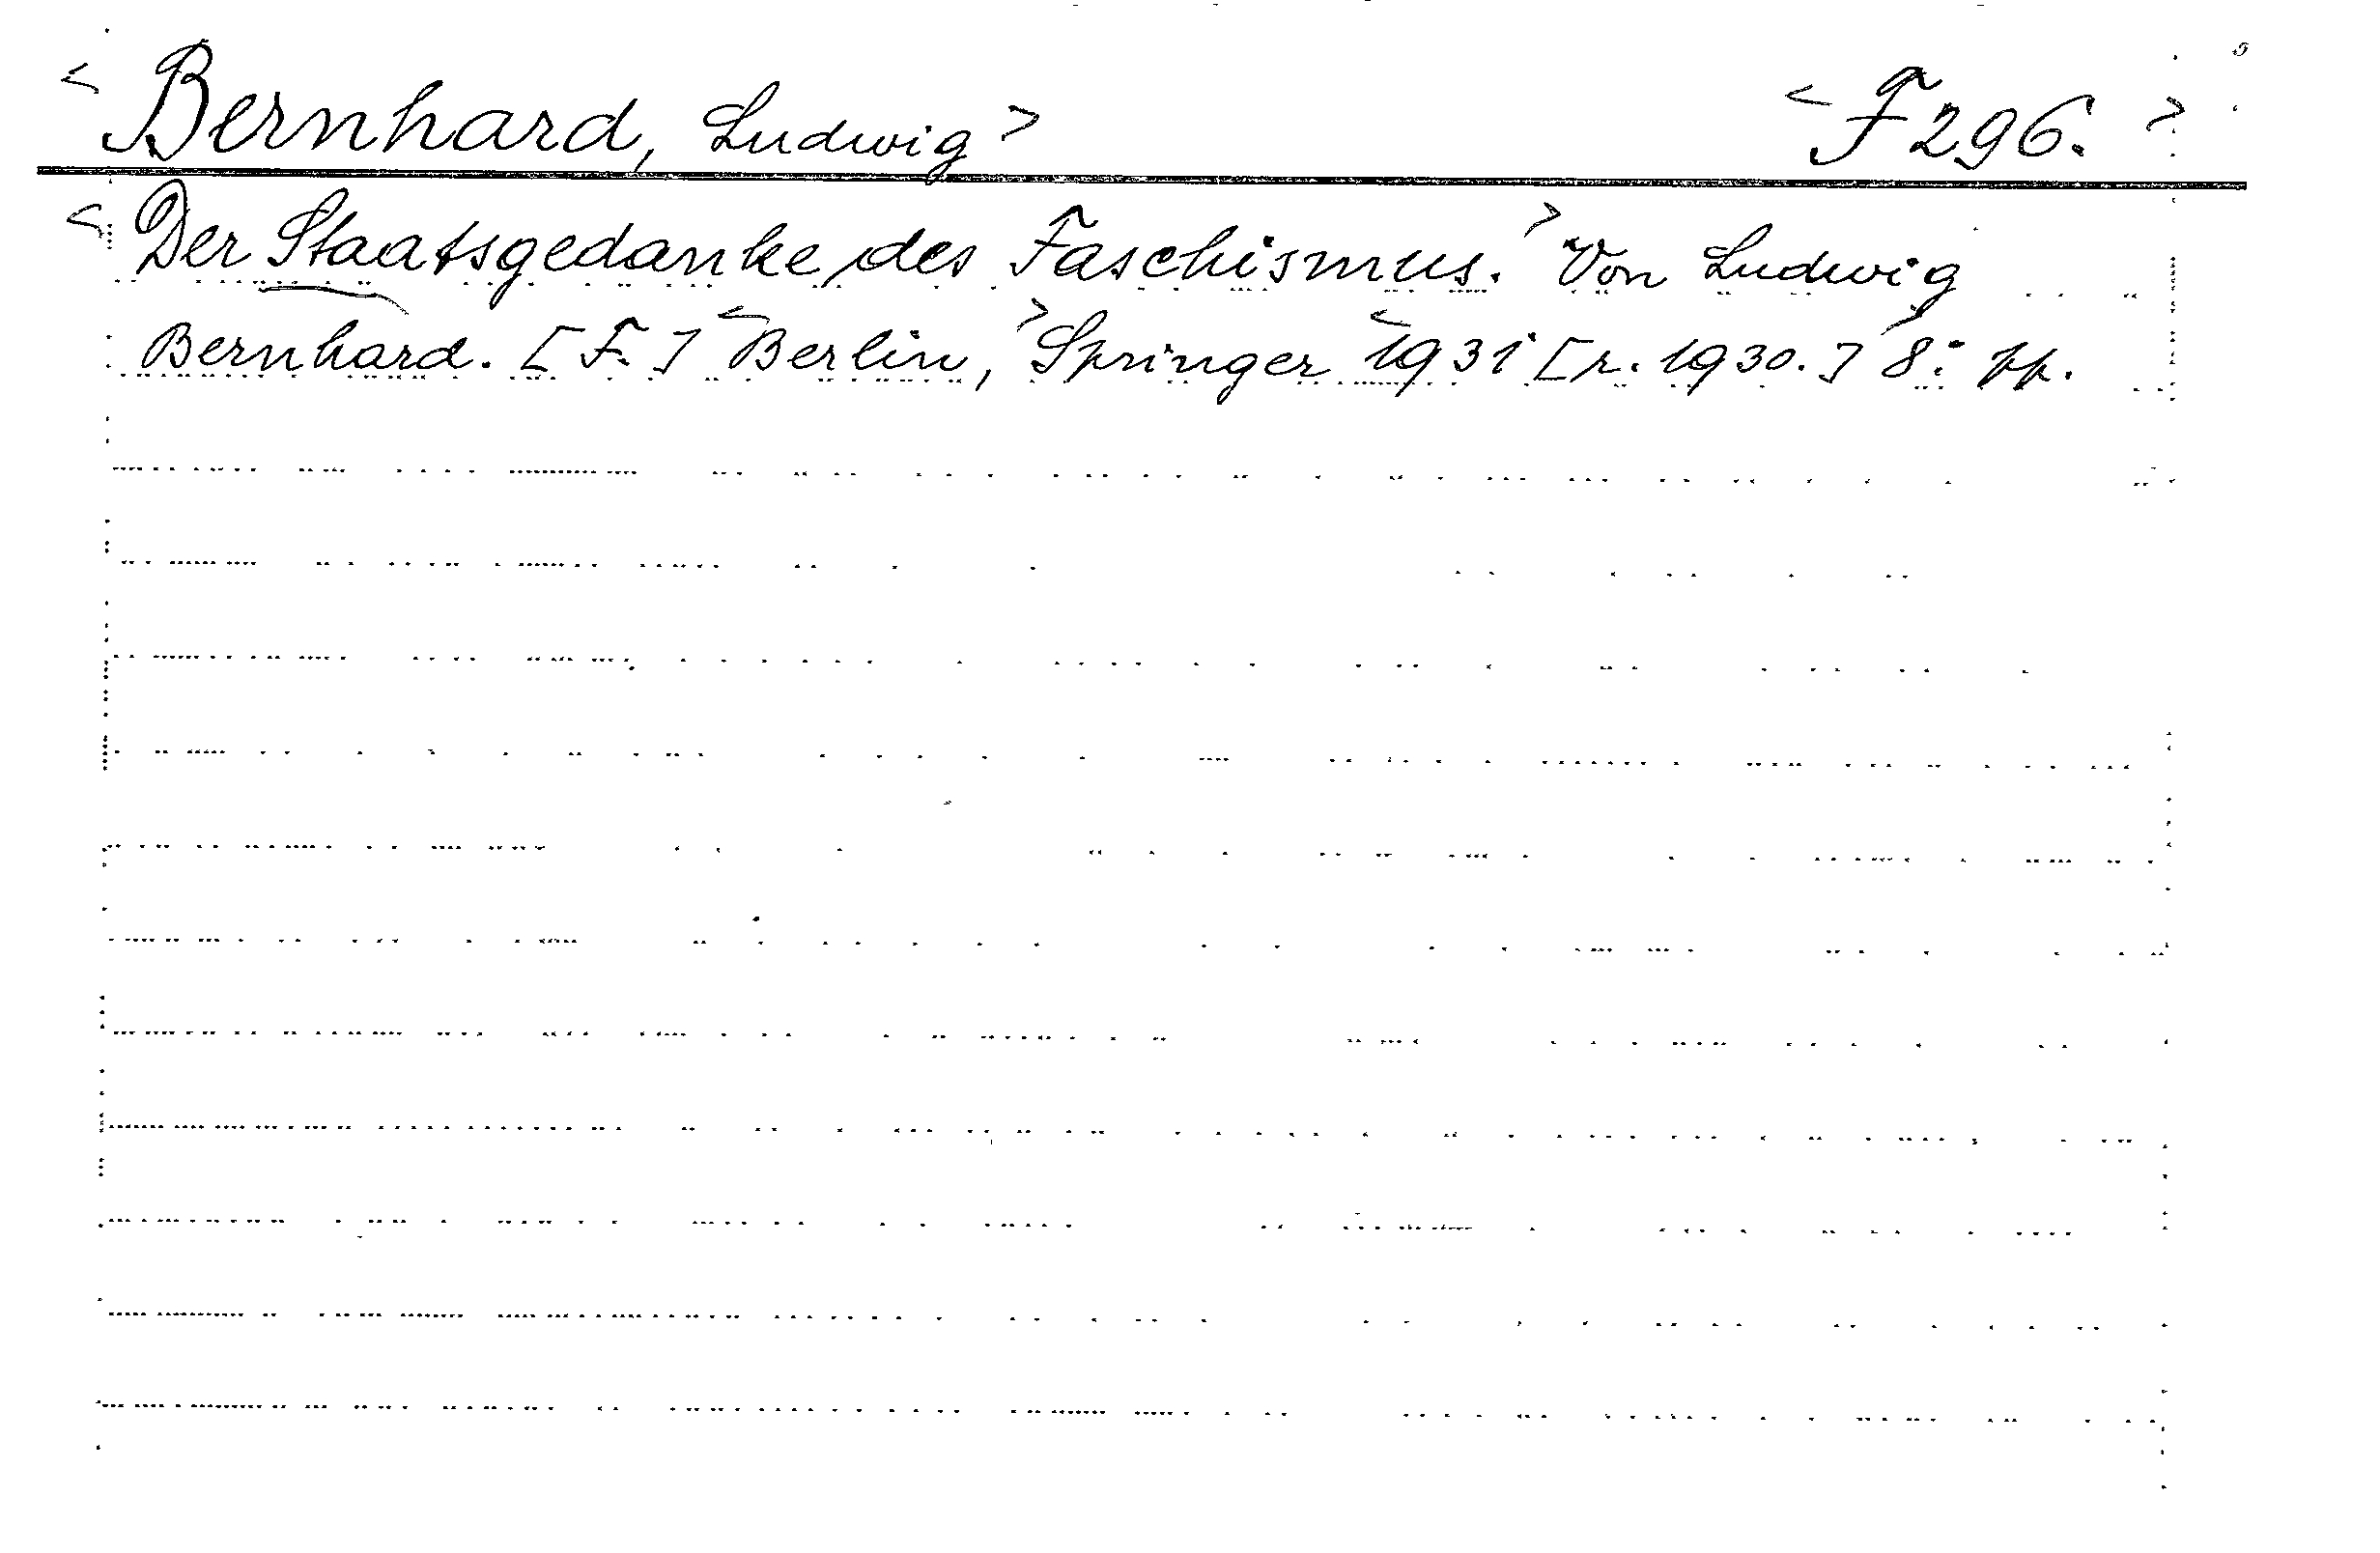 < Bernhard, Ludwig > < F 296. >
< Der Staatsgedanke des Faschismus. > Von Ludwig
Bernhard. [F.] < Berlin, > Springer < 1931 [r. 1930.] > 8° pp.